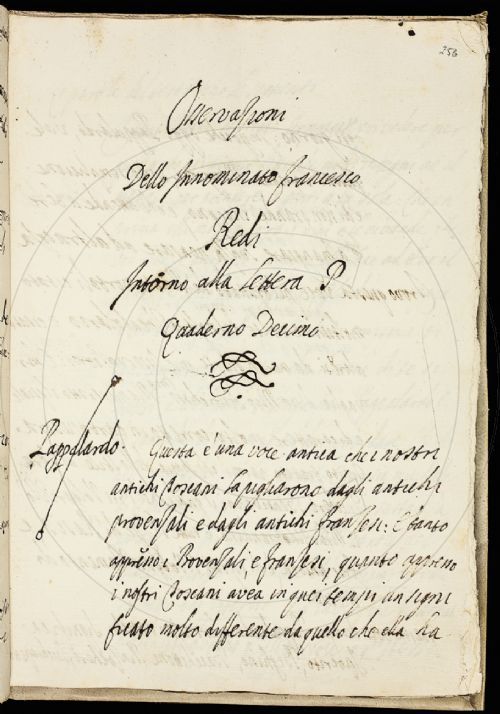 256
Osservazioni
Dello Innominato Francesco
Redi
Intorno alla Lettera P
Quaderno Decimo
Pappalardo. Questa è una voce antica che i nostri
antichi Toscani la pigliarono dagli antichi
provenzali e dagli antichi franzesi: E tanto
appresso i Provenzali e franzesi, quanto appresso
i nostri Toscani avea in quei tempi un signi
ficato molto differente da quello che ella ha